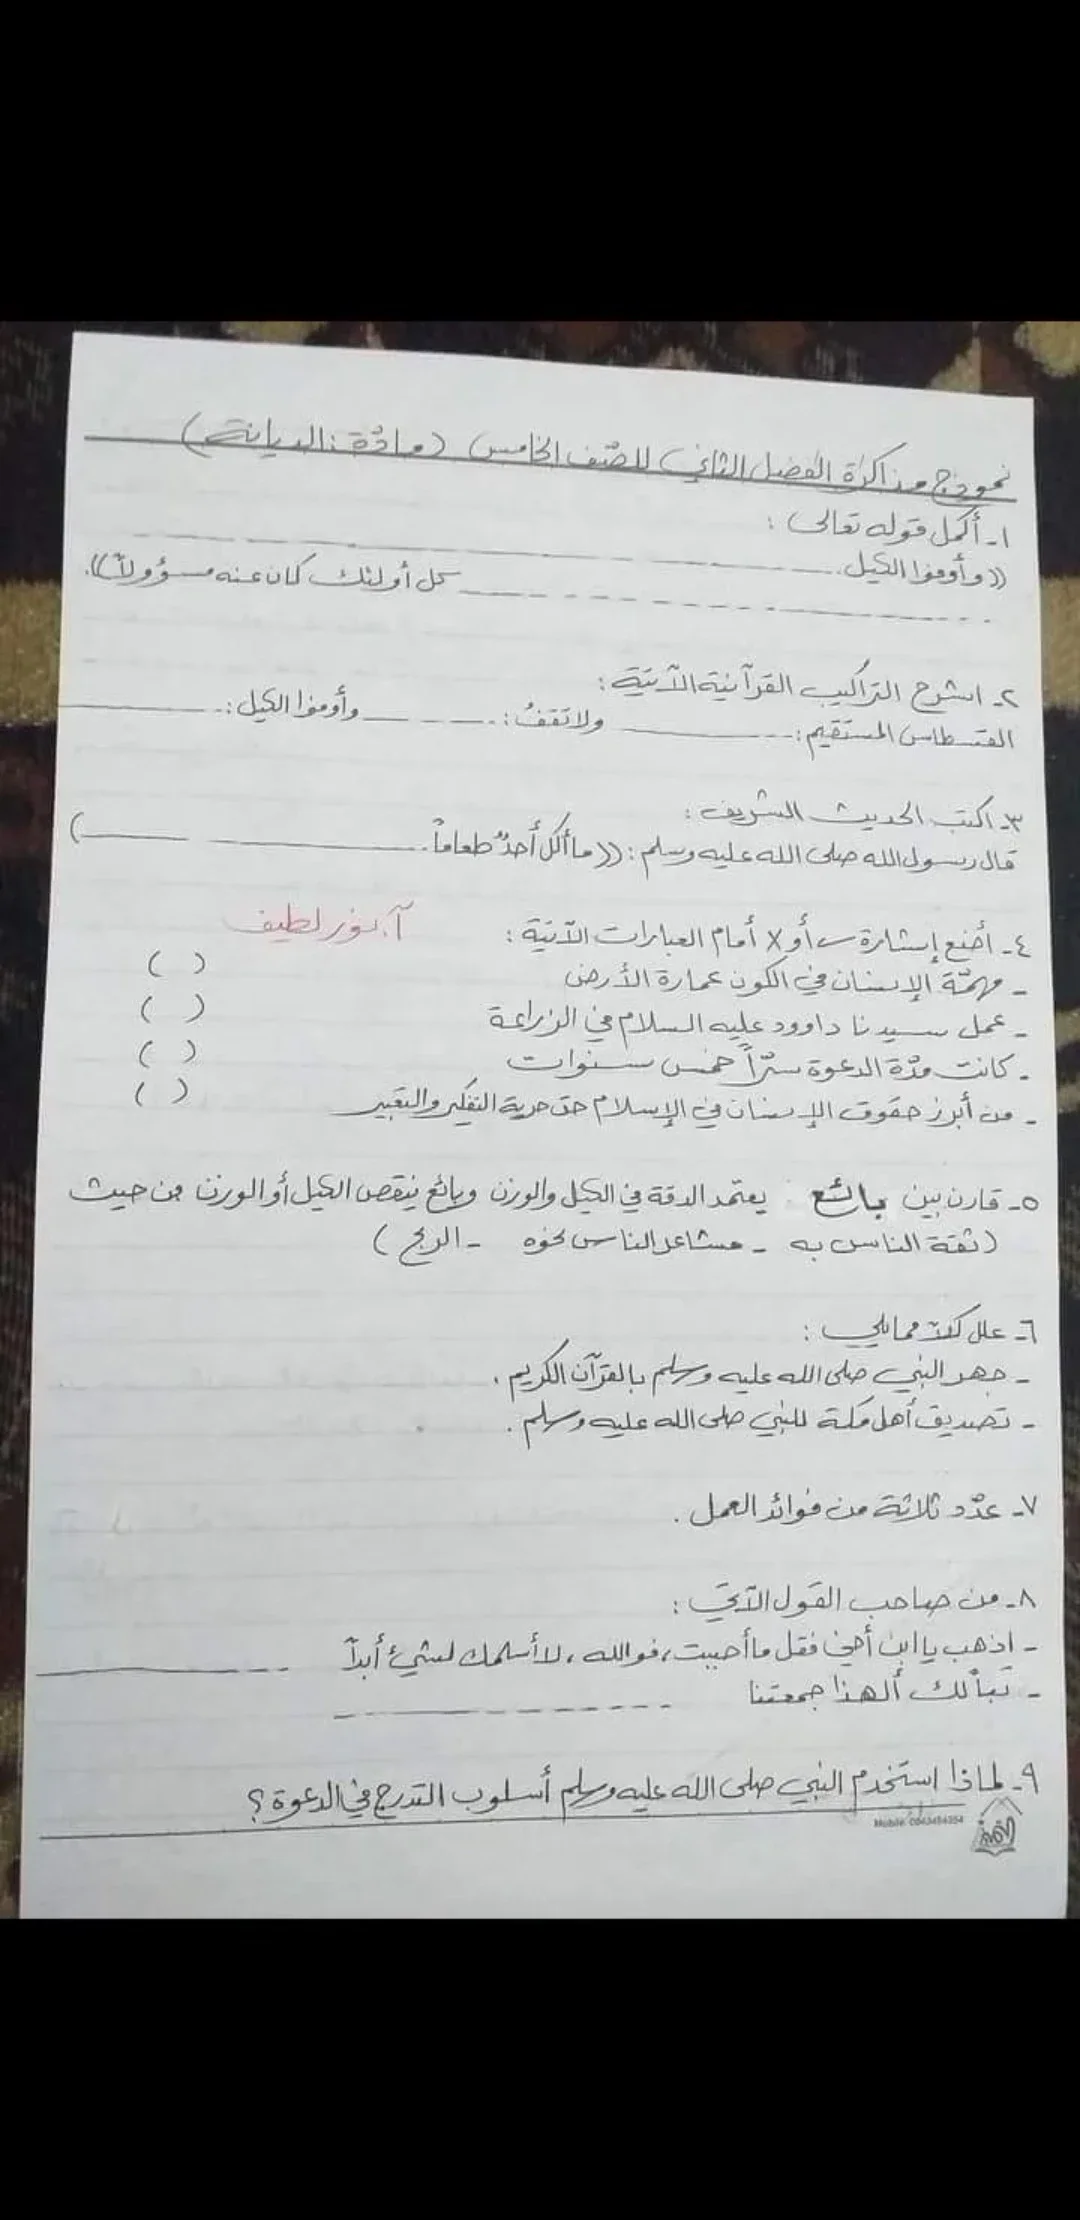 نموذج مذاكرة الفصل الثاني للصّف الخامس (مادّة: الديانة)
١- أكمل قوله تعالى :
((وأوفوا الكيل
كل أولئك كان عنه مسؤولاً)).
٢- اشرح التراكيب القرآنية الآتية:
القسطاس المستقيم: ولا تقفُ: وأوفوا الكيل:
٣- اكتب الحديث الشريف :
قال رسول الله صلى الله عليه وسلم : ((ما أكل أحدٌ طعاماً )
٤- أضع إشارة ✓ أو X أمام العبارات الآتية :
آ. نور لطيف
- مهمّة الإنسان في الكون عمارة الأرض ( )
- عمل سيدنا داوود عليه السلام في الزراعة ( )
- كانت مدّة الدعوة سرّاً خمس سنوات ( )
- من أبرز حقوق الإنسان في الإسلام حق حرية التفكير والتعبير ( )
٥- قارن بين بائع يعتمد الدقة في الكيل والوزن وبائع ينقص الكيل أو الوزن من حيث
(ثقة الناس به - مشاعر الناس نحوه - الربح )
٦- علل كلاً مما يلي :
- جهر النبي صلى الله عليه وسلم بالقرآن الكريم .
- تصديق أهل مكة للنبي صلى الله عليه وسلم .
٧- عدّد ثلاثة من فوائد العمل .
٨- من صاحب القول الآتي :
- اذهب يا ابن أخي فقل ما أحببت، فوالله ، لا أسلمك لشيء أبداً
- تباً لك ألهذا جمعتنا
٩- لماذا استخدم النبي صلى الله عليه وسلم أسلوب التدرج في الدعوة ؟